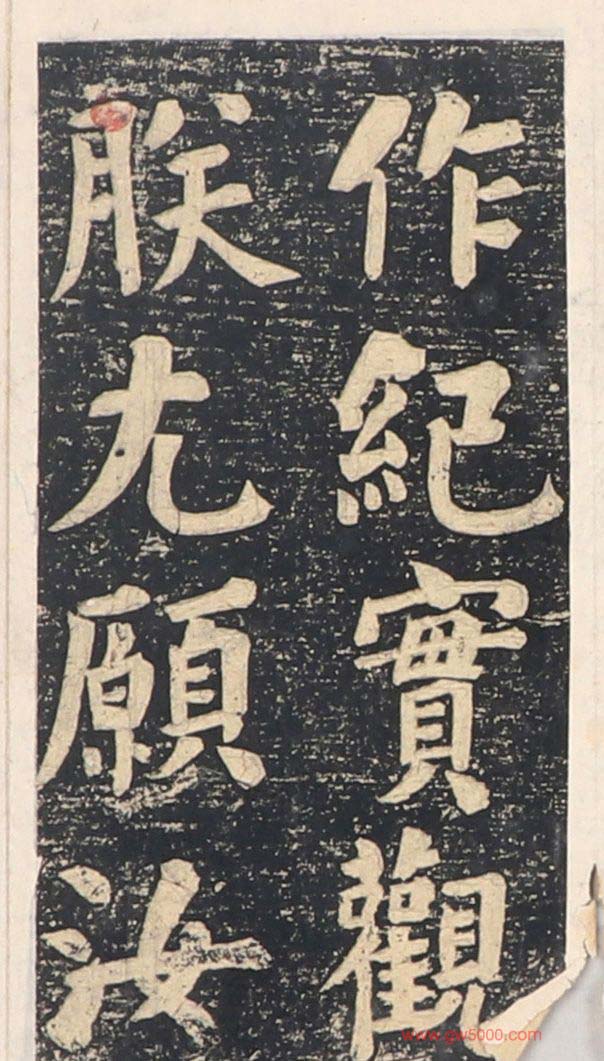 作紀實觀
朕尤願汝
www.gw5000.com